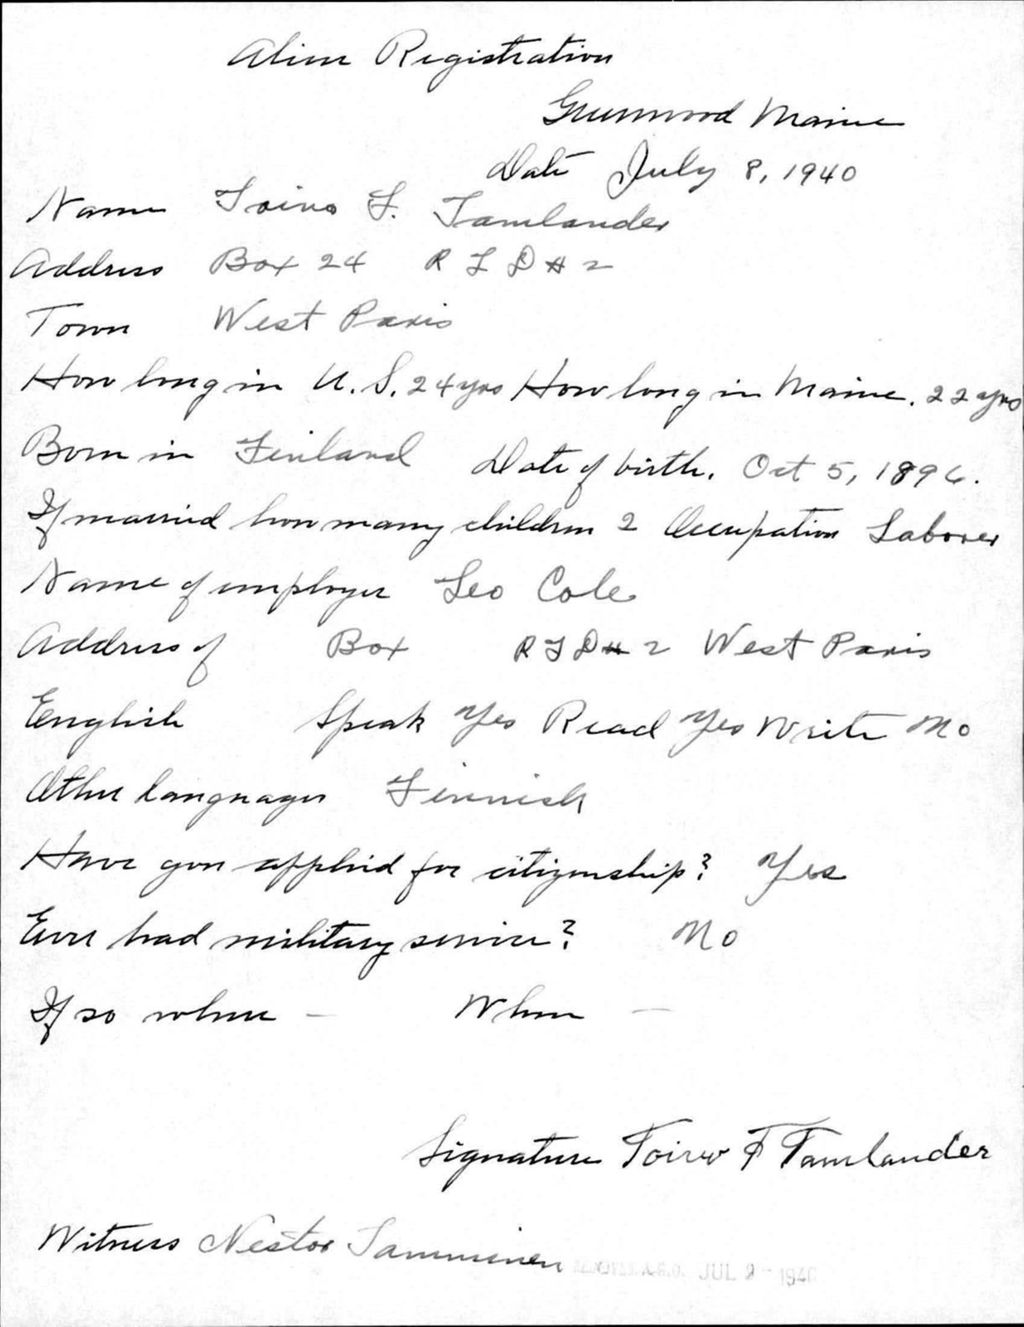 Alien Registration
Greenwood Maine
Date July 8, 1940
Name Toivo F. Tamlander
Address Box 24 R F D # 2
Town West Paris
How long in U. S. 24 yrs How long in Maine. 22 yrs
Born in Finland Date of birth. Oct 5, 1896.
If married how many children 2 Occupation Laborer
Name of employer Leo Cole
Address of Box R F D # 2 West Paris
English Speak Yes Read Yes Write No
Other languages Finnish
Have you applied for citizenship? Yes
Ever had military service? No
If so where - When -
Signature Toivo F Tamlander
Witness Nestor Tamminen
JUL 9 - 1940